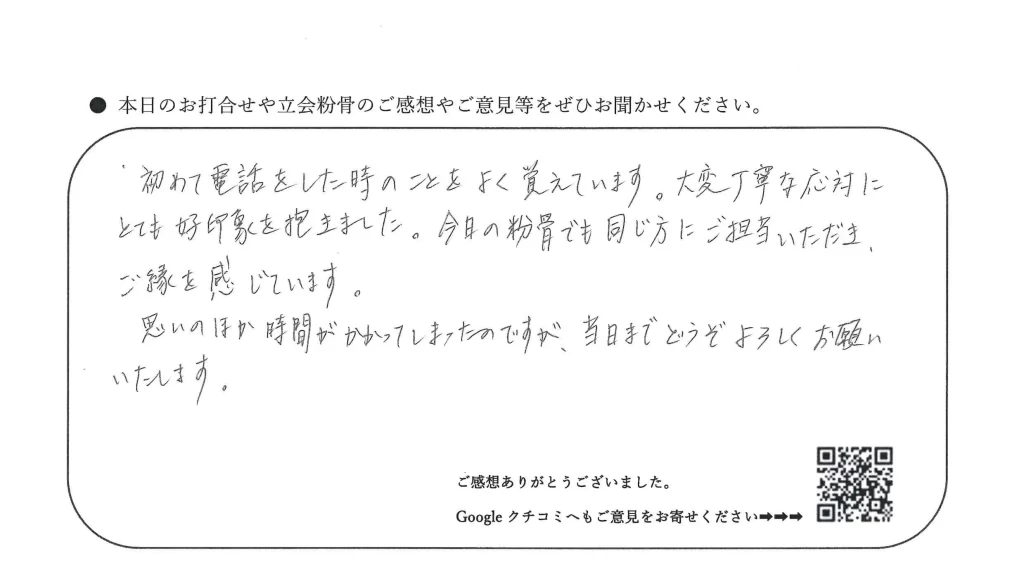 ● 本日のお打合せや立会粉骨のご感想やご意見等をぜひお聞かせください。
初めて電話をした時のことをよく覚えています。大変丁寧な応対に
とても好印象を抱きました。今日の粉骨でも同じ方にご担当いただき、
ご縁を感じています。
思いのほか時間がかかってしまったのですが、当日までどうぞよろしくお願い
いたします。
ご感想ありがとうございました。
Google クチコミへもご意見をお寄せください➡➡➡